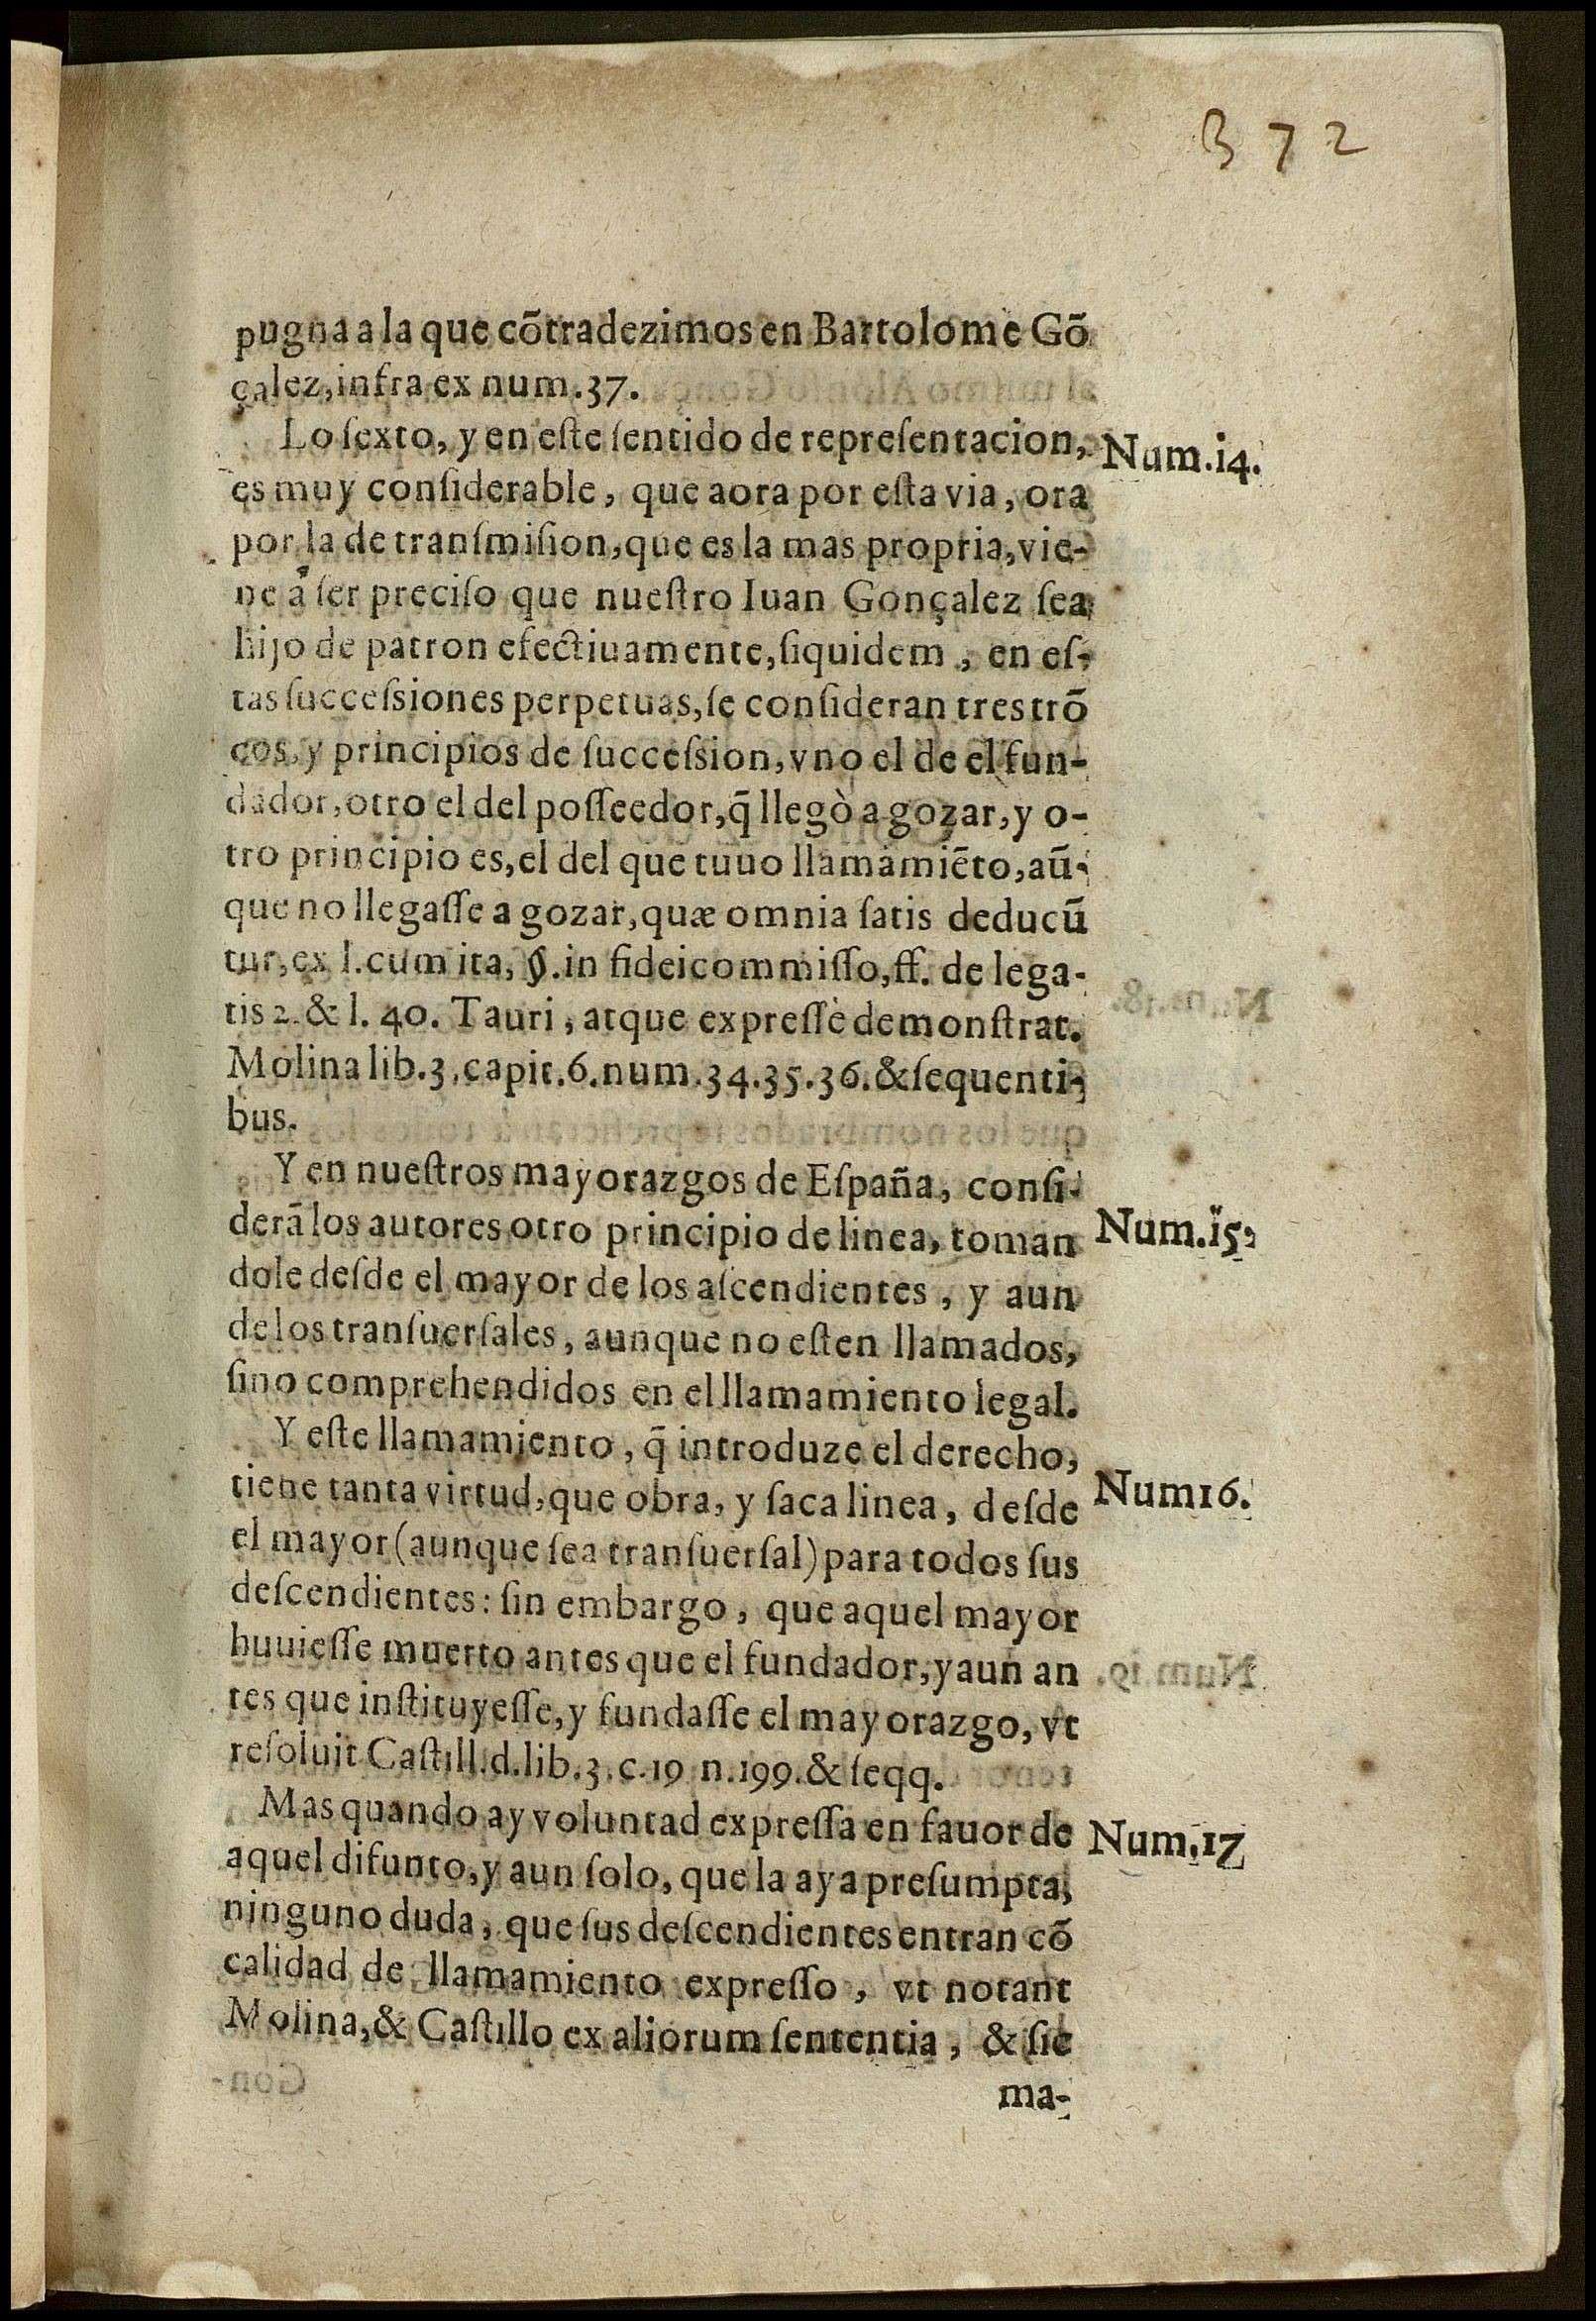 372
pugna a la que cõtradezimos en Bartolome Gõ
çalez, infra ex num.37.
Lo ſexto, y en eſte ſentido de repreſentacion, Num.14.
es muy conſiderable, que aora por eſta via, ora
por la de tranſmiſion, que es la mas propria, vie-
ne à ſer preciſo que nueſtro Iuan Gonçalez ſea
hijo de patron efectiuamente, ſiquidem, en eſ-
tas ſucceſsiones perpetuas, ſe conſideran tres trõ
cos, y principios de ſucceſsion, vno el de el fun-
dador, otro el del poſſeedor, q̃ llegò a gozar, y o-
tro principio es, el del que tuuo llamamiẽto, aũ-
que no llegaſſe a gozar, quæ omnia ſatis deducũ
tur, ex l. cum ita, §. in fideicommiſſo, ff. de lega-
tis 2. & l. 40. Tauri, atque expreſſè demonſtrat.
Molina lib.3. capit.6. num.34.35.36. & ſequenti-
bus.
Y en nueſtros mayorazgos de Eſpaña, conſi-
derã los autores otro principio de linea, toman Num.15.
dole deſde el mayor de los aſcendientes, y aun
de los tranſuerſales, aunque no eſten llamados,
ſino comprehendidos en el llamamiento legal.
Y eſte llamamiento, q̃ introduze el derecho,
tiene tanta virtud, que obra, y ſaca linea, deſde Num16.
el mayor (aunque ſea tranſuerſal) para todos ſus
deſcendientes: ſin embargo, que aquel mayor
huuieſſe muerto antes que el fundador, y aun an
tes que inſtituyeſſe, y fundaſſe el mayorazgo, vt
reſoluit Caſtill. d. lib.3. c.19 n.199. & ſeqq.
Mas quando ay voluntad expreſſa en fauor de Num.17
aquel difunto, y aun ſolo, que la aya preſumpta,
ninguno duda, que ſus deſcendientes entran cõ
calidad de llamamiento expreſſo, vt notant
Molina, & Caſtillo ex aliorum ſententia, & ſic
ma-